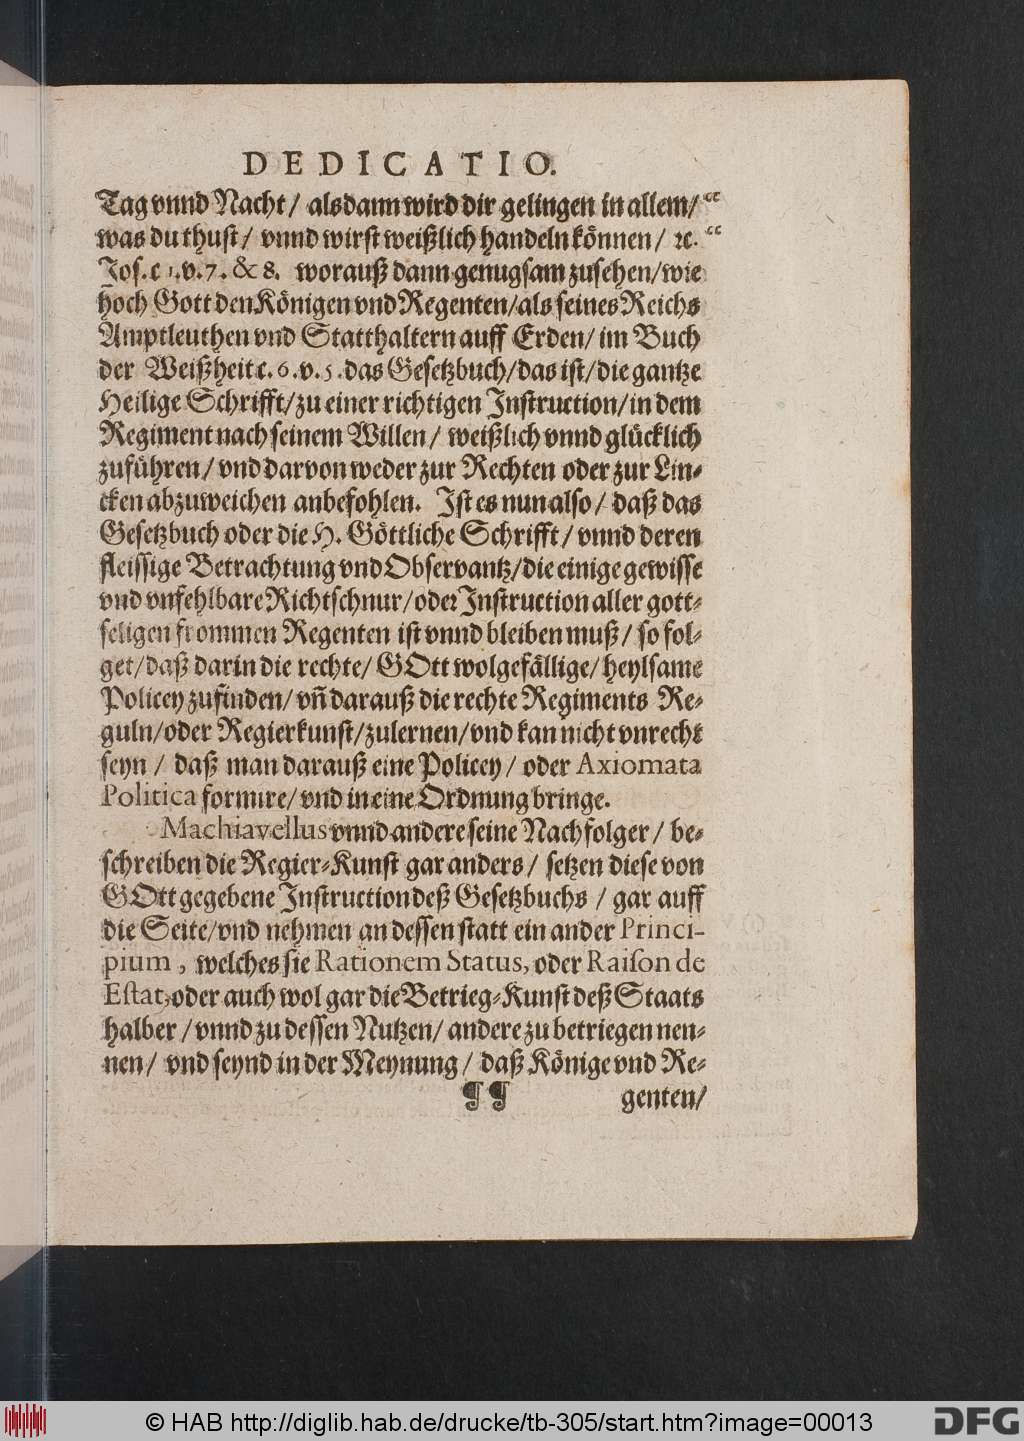 DEDICATIO.
Tag vnnd Nacht / alsdann wird dir gelingen in allem / “
was du thust / vnnd wirst weißlich handeln können / ꝛc. “
Jos. c 1. v. 7. & 8. worauß dann genugsam zusehen / wie
hoch Gott den Königen vnd Regenten / als seines Reichs
Amptleuthen vnd Statthaltern auff Erden / im Buch
der Weißheit c. 6. v. 5. das Gesetzbuch / das ist / die gantze
Heilige Schrifft / zu einer richtigen Instruction / in dem
Regiment nach seinem Willen / weißlich vnnd glücklich
zuführen / vnd darvon weder zur Rechten oder zur Lin-
cken abzuweichen anbefohlen. Ist es nun also / daß das
Gesetzbuch oder die H. Göttliche Schrifft / vnnd deren
fleissige Betrachtung vnd Observantz / die einige gewisse
vnd vnfehlbare Richtschnur / oder Instruction aller gott-
seligen frommen Regenten ist vnnd bleiben muß / so fol-
get / daß darin die rechte / GOtt wolgefällige / heylsame
Policey zufinden / vñ darauß die rechte Regiments Re-
guln / oder Regierkunst / zulernen / vnd kan nicht vnrecht
seyn / daß man darauß eine Policey / oder Axiomata
Politica formire / vnd in eine Ordnung bringe.
Machiavellus vnnd andere seine Nachfolger / be-
schreiben die Regier-Kunst gar anders / setzen diese von
GOtt gegebene Instruction deß Gesetzbuchs / gar auff
die Seite / vnd nehmen an dessen statt ein ander Princi-
pium, welches sie Rationem Status, oder Raiſon de
Eſtat, oder auch wol gar die Betrieg-Kunst deß Staats
halber / vnnd zu dessen Nutzen / andere zu betriegen nen-
nen / vnd seynd in der Meynung / daß Könige vnd Re-
¶¶ genten /
© HAB http://diglib.hab.de/drucke/tb-305/start.htm?image=00013
DFG